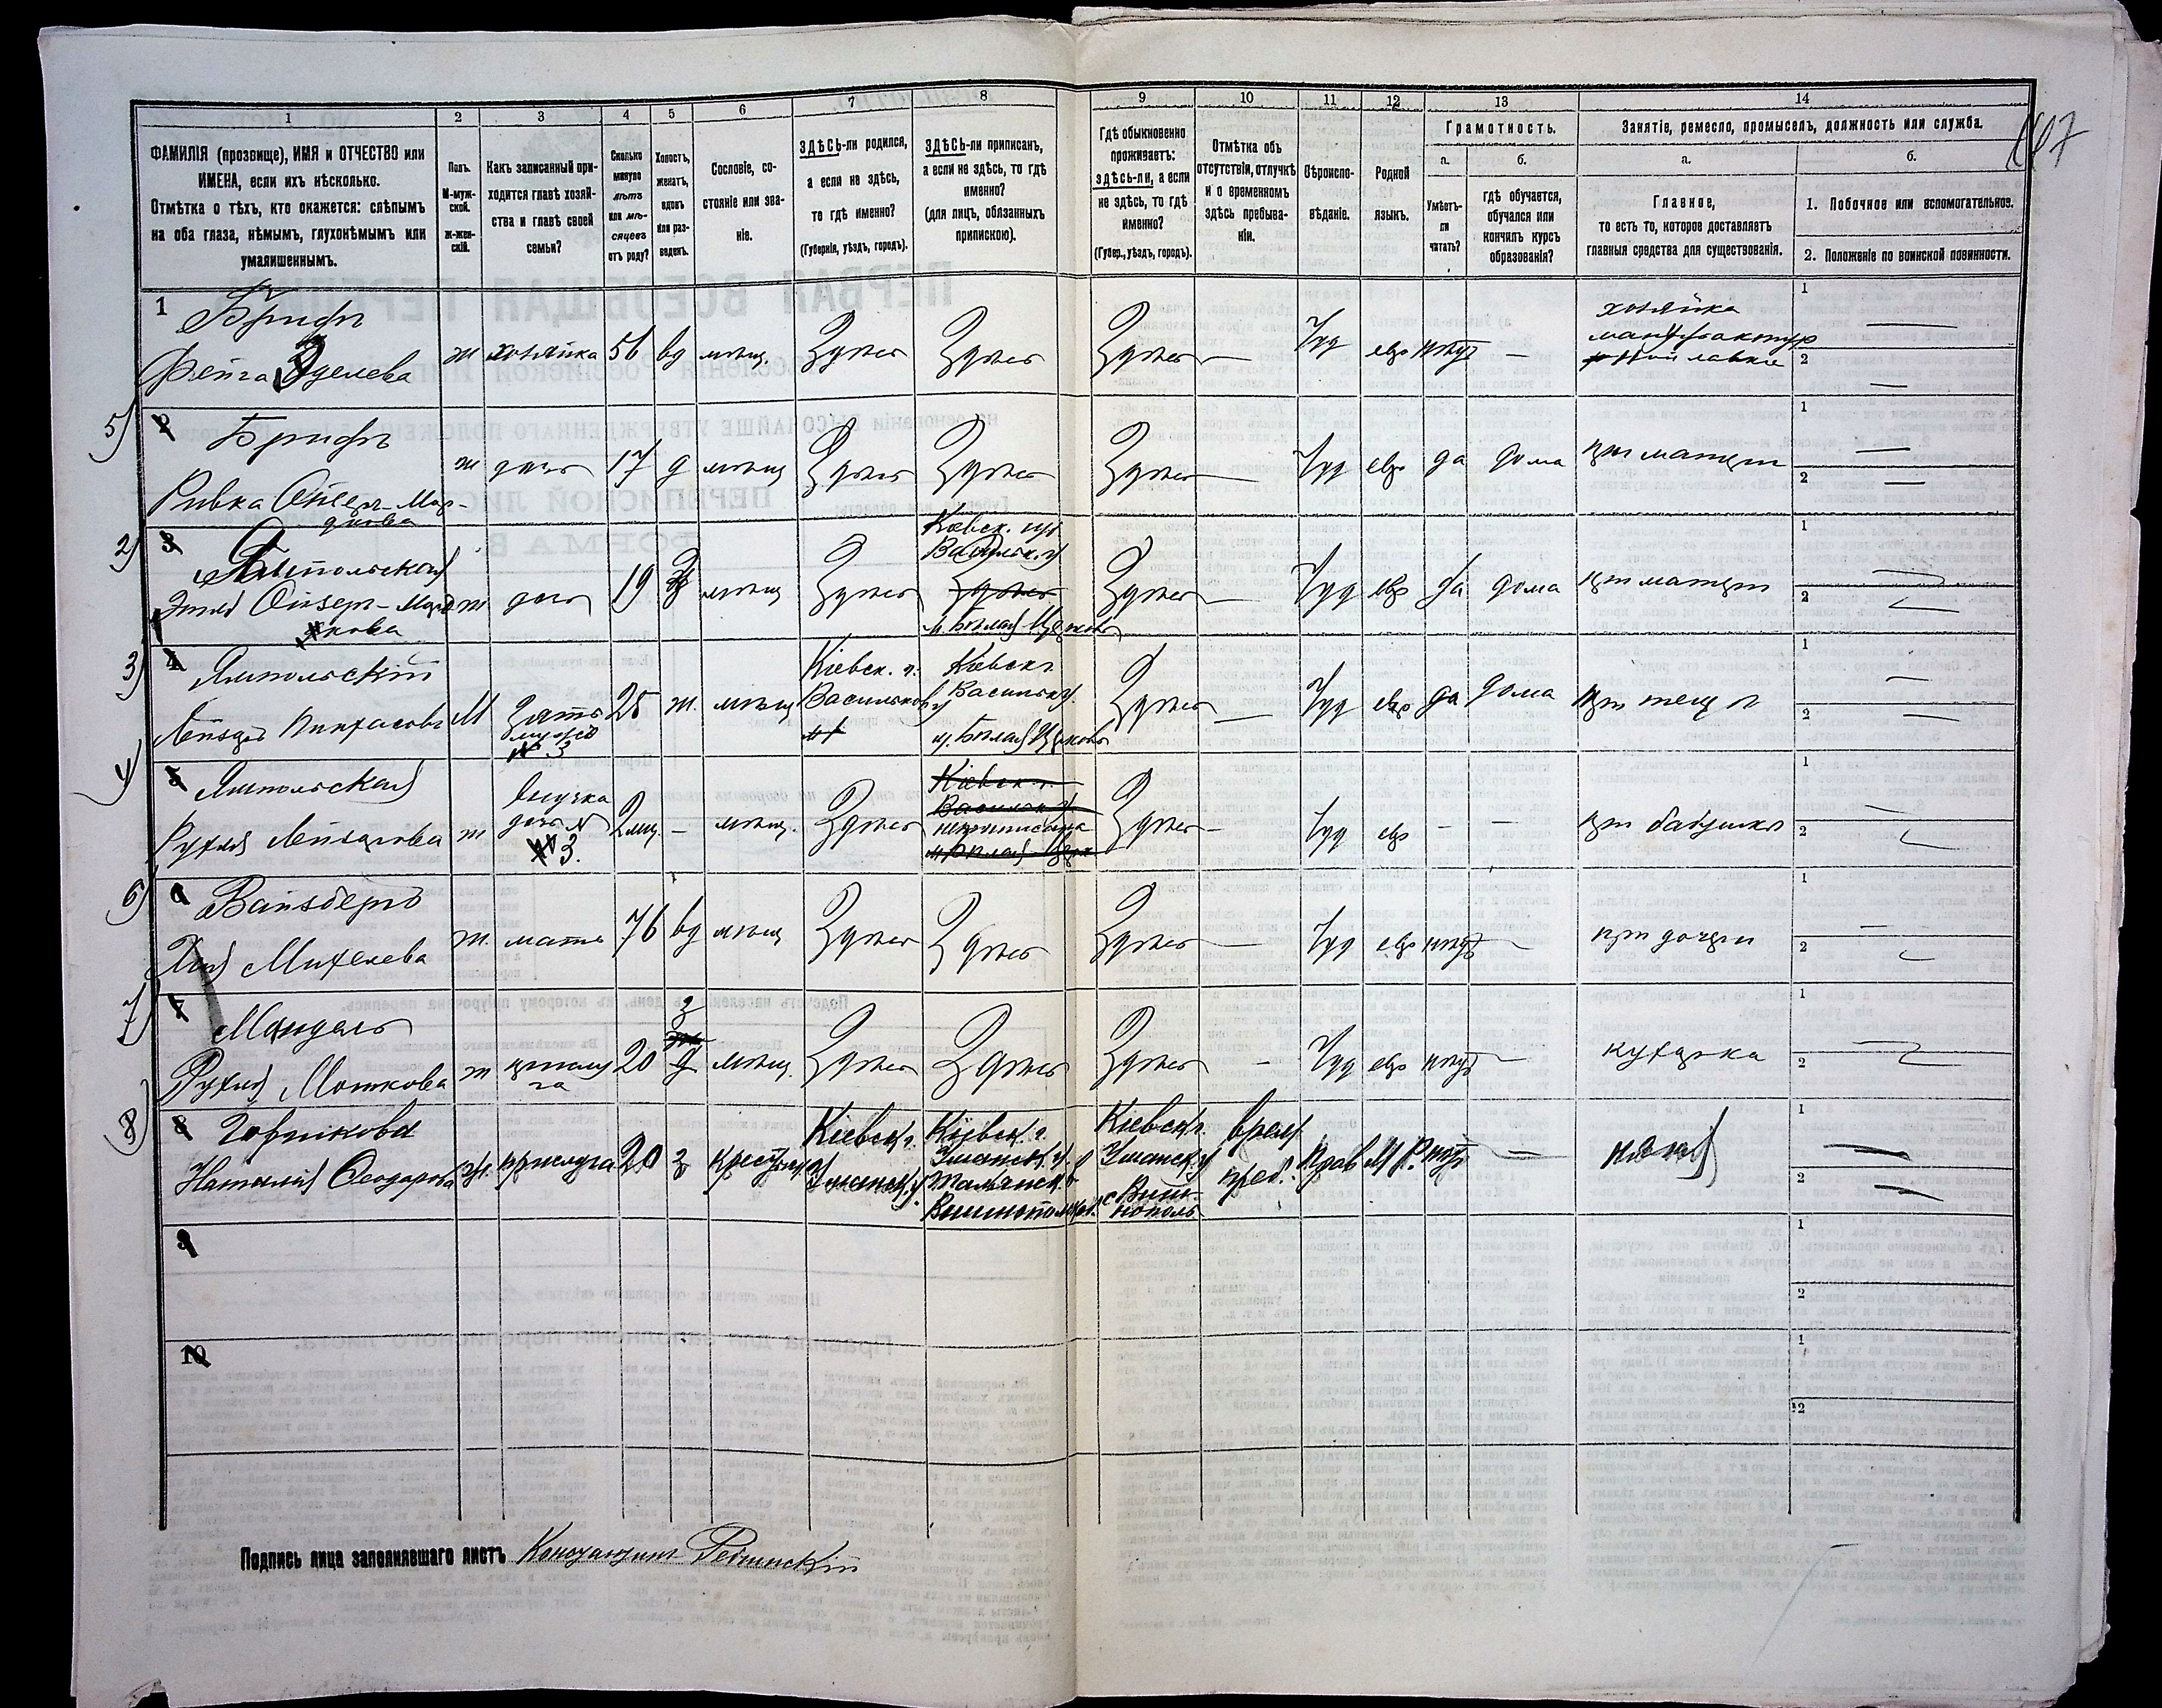 107
1 2 3 4 5 6 7 8 9 10 11 12 13 14
ФАМИЛІЯ (прозвище), ИМЯ и ОТЧЕСТВО или ИМЕНА, если ихъ нѣсколько.
Отмѣтка о тѣхъ, кто окажется: слѣпымъ на оба глаза, нѣмымъ, глухонѣмымъ или умалишеннымъ.
Полъ.
М-мужской.
Ж-женскій.
Какъ записанный приходится главѣ хозяйства и главѣ своей семьи?
Сколько минуло лѣтъ или мѣсяцевъ отъ роду?
Холостъ, женатъ, вдовъ или разведенъ.
Сословіе, состояніе или званіе.
ЗДѢСЬ-ли родился, а если не здѣсь, то гдѣ именно?
(Губернія, уѣздъ, городъ).
ЗДѢСЬ-ли приписанъ, а если не здѣсь, то гдѣ именно?
(для лицъ, обязанныхъ припискою).
Гдѣ обыкновенно проживаетъ: здѣсь-ли, а если не здѣсь, то гдѣ именно?
(Губер., уѣздъ, городъ).
Отмѣтка объ отсутствіи, отлучкѣ и о временномъ здѣсь пребываніи.
Вѣроисповѣданіе.
Родной языкъ.
Грамотность.
а.
Умѣетъ-ли читать?
б.
гдѣ обучается, обучался или кончилъ курсъ образованія?
Занятіе, ремесло, промыселъ, должность или служба.
а.
Главное,
то есть то, которое доставляетъ главныя средства для существованія.
б.
1. Побочное или вспомогательное.
2. Положеніе по воинской повинности.
1 Брифъ
Фейга Эделева ж хозяйка 56 вд мѣщ. Здѣсь Здѣсь Здѣсь — Іуд евр нѣтъ — хозяйка мануфактурной лавки 1 — 2 —
5) 2 Брифъ
Ривка Ойзер-Мордкова ж дочь 17 д мѣщ Здѣсь Здѣсь Здѣсь — Іуд евр да дома при матери 1 — 2 —
2) 3 Ямпольская
Этля Ойзер-Мордкова ж дочь 19 з мѣщ Здѣсь Кіевск. гу Васильк. у Здѣсь м. Бѣлая Церковь Здѣсь — Іуд евр да дома при матери 1 — 2 —
3) 4 Ямпольскій
Лейзеръ Пинхасовъ М Зять мужъ № 3 25 ж. мѣщ Кіевск. г. Васильков у Кіевск г. Васильк у. м. Бѣлая Церковь Здѣсь — Іуд евр да дома при тещѣ 1 — 2 —
4) 5 Ямпольская
Рухля Лейзерова ж внучка дочь № 3. 2 мц. — мѣщ. Здѣсь Кіевск г. Васильк у. неприписана м. Бѣлая Церк Здѣсь — Іуд евр — — при бабушкѣ 1 — 2 —
6) 6 Вайзбергъ
Хая Михелева ж. мать 76 вд мѣщ Здѣсь Здѣсь Здѣсь — Іуд евр нѣтъ — при дочери 1 — 2 —
7) 7 Мандель
Рухля Мошкова ж прислуга 20 з д мѣщ. Здѣсь Здѣсь Здѣсь — Іуд евр нѣтъ — кухарка 1 — 2 —
8) 8 Горликова
Наталія Ѳеодорова ж. прислуга 20 з крестьян Кіевск г. Уманск. у. Кіевск. г. Уманск. у. Тальянск. в Вишнополь Кіевск г. Уманск. у с Вишнополь врем преб. Прав М Р. нѣтъ — няня 1 — 2 —
9 1 2
10 1 2
Подпись лица заполнявшаго листъ Константинъ